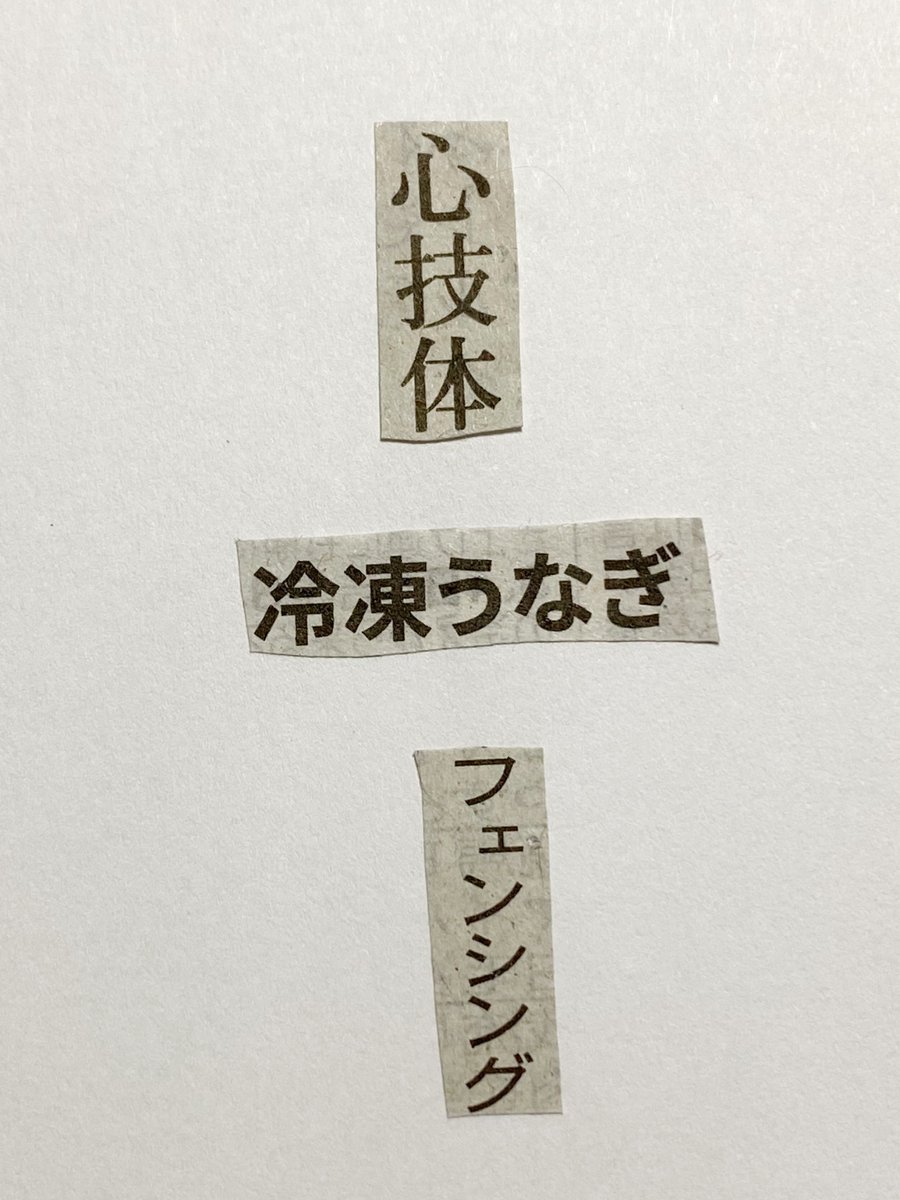 心技体
冷凍うなぎ
フェンシング